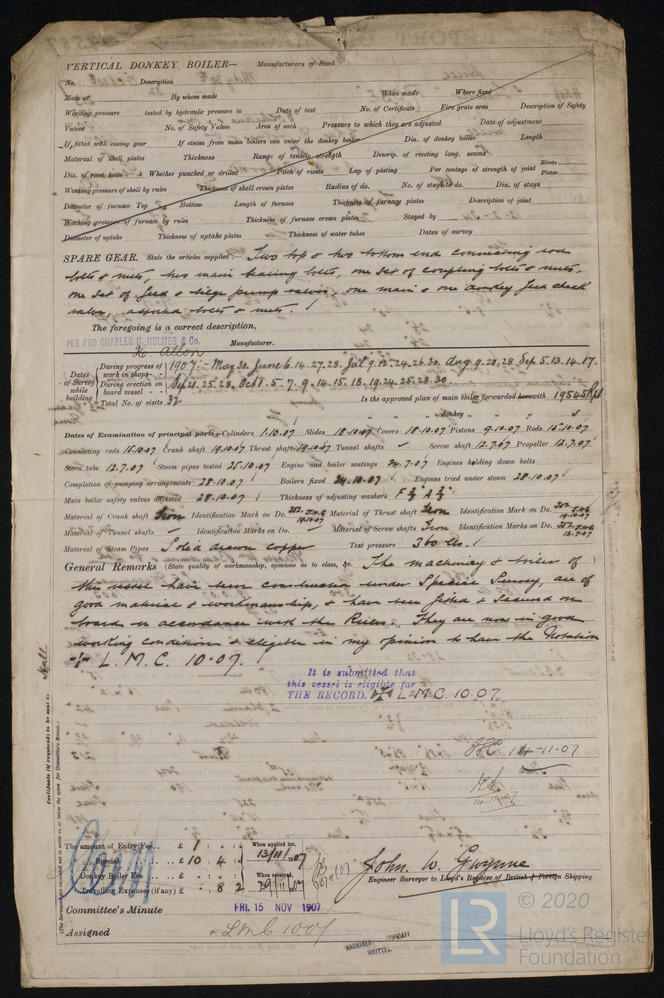 VERTICAL DONKEY BOILER— Manufacturers of Steel
No. Description
Made at By whom made When made Where fixed
Working pressure tested by hydraulic pressure to Date of test No. of Certificate Fire grate area Description of Safety
Valves No. of Safety Valves Area of each Pressure to which they are adjusted Date of adjustment
If fitted with easing gear If steam from main boilers can enter the donkey boiler Dia. of donkey boiler Length
Material of shell plates Thickness Range of tensile strength Descrip. of riveting long. seams
Dia. of rivet holes Whether punched or drilled Pitch of rivets Lap of plating Per centage of strength of joint Rivets Plates
Working pressure of shell by rules Thickness of shell crown plates Radius of do. No. of stays to do. Dia. of stays
Diameter of furnace Top Bottom Length of furnace Thickness of furnace plates Description of joint
Working pressure of furnace by rules Thickness of furnace crown plates Stayed by
Diameter of uptake Thickness of uptake plates Thickness of water tubes Dates of survey
SPARE GEAR. State the articles supplied:— Two top & two bottom end connecting rod
bolts & nuts, two main bearing bolts, one set of coupling bolts & nuts,
one set of feed & bilge pump valves, one main & one donkey feed check
valve, assorted bolts & nuts.
The foregoing is a correct description,
PER PRO CHARLES D. HOLMES & Co. Manufacturer.
K. Allon
Dates of Survey while building
During progress of work in shops - - 1907:- May 30. June 6. 14. 27. 28. Jul 9. 12. 24. 26. 30. Aug 9. 20. 28. Sep 5. 13. 14. 17.
During erection on board vessel - - - Sep 21. 25. 28. Oct 1. 5. 7. 9. 14. 15. 18. 19. 24. 25. 28. 30.
Total No. of visits 32 Is the approved plan of main boiler forwarded herewith 19545
" " " donkey " " "
Dates of Examination of principal parts—Cylinders 1.10.07 Slides 18.10.07 Covers 18.10.07 Pistons 9.10.07 Rods 15.10.07
Connecting rods 15.10.07 Crank shaft 19.10.07 Thrust shaft 19.10.07 Tunnel shafts ✓ Screw shaft 12.7.07 Propeller 12.7.07
Stern tube 12.7.07 Steam pipes tested 25.10.07 Engine and boiler seatings 24.7.07 Engines holding down bolts
Completion of pumping arrangements 28.10.07 Boilers fixed 24.10.07 Engines tried under steam 28.10.07
Main boiler safety valves adjusted 28.10.07 Thickness of adjusting washers
Material of Crank shaft Iron Identification Mark on Do. Material of Thrust shaft Iron Identification Mark on Do.
Material of Tunnel shafts ✓ Identification Marks on Do. Material of Screw shafts Iron Identification Marks on Do.
Material of Steam Pipes Solid drawn copper Test pressure 360 lbs.
General Remarks (State quality of workmanship, opinions as to class, &c. The machinery & boiler of
this vessel have been constructed under Special Survey, are of
good material & workmanship, & have been fitted & secured on
board in accordance with the Rules. They are now in good
working condition & eligible in my opinion to have the Notation
L.M.C. 10.07.
It is submitted that
this vessel is eligible for
THE RECORD. ✠ L.M.C 10.07.
14-11-07
Certificate (if required) to be sent to Hull
The amount of Entry Fee. . £ 1 : : When applied for,
Special . . . . £ 10 : 4 : 13/11/07
Donkey Boiler Fee . . . £ : : When received,
Travelling Expenses (if any) £ : 8 : 2 29/11/07
John W. Gwynne
Engineer Surveyor to Lloyd's Register of British & Foreign Shipping.
Committee's Minute FRI. 15 NOV 1907
Assigned + LMC 10.07
MACHINERY CERTIFICATE
WRITTEN.
LR © 2020
Lloyd's Register
Foundation